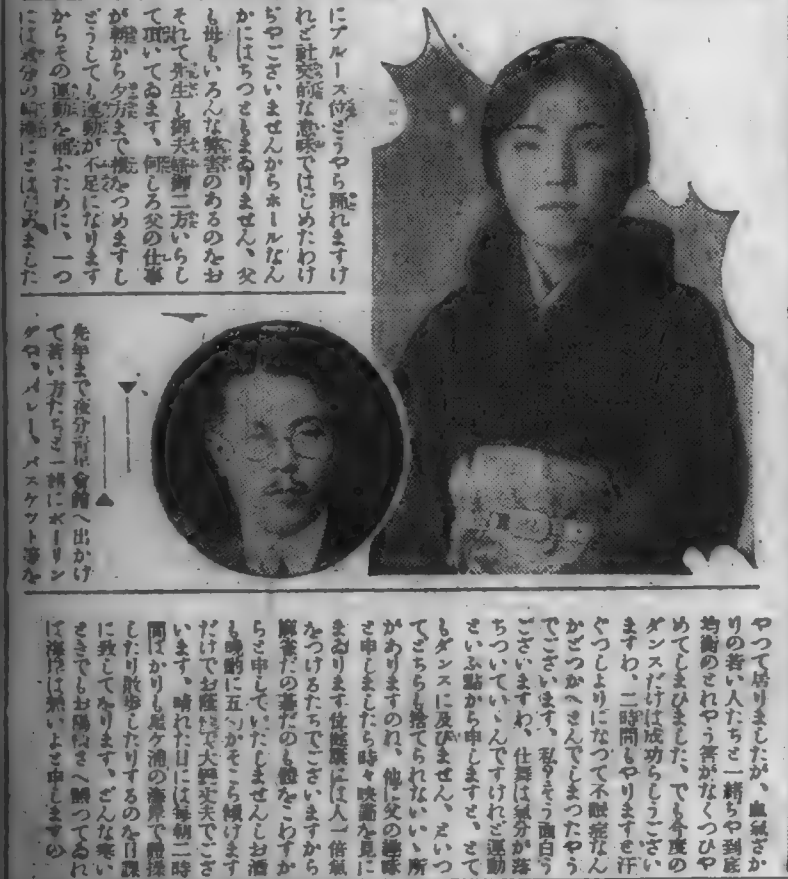 にブルース位どうやら踊れますけ
れど社交的な意味ではじめたわけ
ぢやございませんからホールなん
かにはちつともまゐりません、父
も母もいろんな弊害のあるのをお
それて先生も御夫婦御二方いらし
て頂いてゐます、何しろ父の仕事
が朝から夕方まで機をつめますし
どうしても運動が不足になります
からその運動を補ふために、一つ
には気分の
先年まで夜分青年會館へ出かけ
て若い方たちと一緒にボーリン
グや、バレー、バスケット等を
やつて居りましたが、血気ざか
りの若い人たちと一緒ぢや到底
均衡のとれやう筈がなくつひや
めてしまひました、でも今度の
ダンスだけは成功らしうござい
ますわ、二時間もやりますと汗
ぐつしよりになつて不眠症なん
かどつかへとんでしまつたやう
でございます、私?そう面白う
ございますわ、仕舞は気分が落
ちついていゝんですけれど運動
といふ點から申しますと、とて
もダンスに及びません、といつ
てどちらも捨てられないいゝ所
がありますのね、他に父の趣味
と申しましたら時々映画を見に
まゐります位健康には人一倍気
をつけるたちでございますから
麻雀だの碁だのも體をこわすか
らと申していたしませんしお酒
も晩酌に五つかそこら傾けます
だけでお蔭で大丈夫でござ
います、晴れた日には毎朝二時
間ばかりも星ケ浦の海岸で體操
したり散歩したりするのを日課
に致してをります、どんな寒い
ときでもお陽さへ照つてゐれ
ば海岸は無いよと申しますの